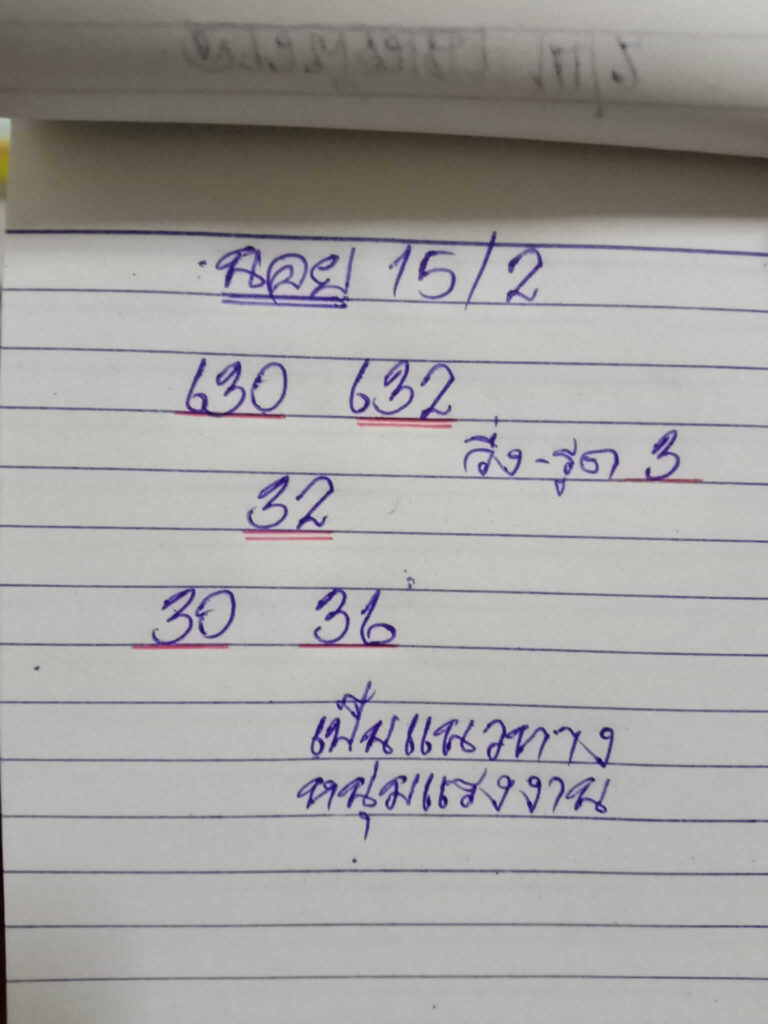 นอย 15/2
630 632
วิ่ง-รูด 3
32
30 36
เป็นแนวทาง
หนุ่มแรงงาน